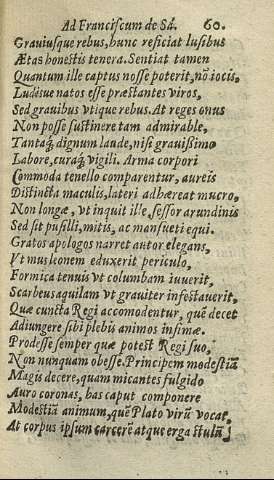 Ad Franciscum de Sá. 60.
Grauiusque rebus, hunc reficiat lusibus
Ætas honestis tenera. Sentiat tamen
Quantum ille captus nosse poterit, nõ iocis,
Ludisue natos esse præstantes viros,
Sed grauibus vtique rebus. At reges onus
Non posse sustinere tam admirable,
Tantaq; dignum laude, nisi grauißimo
Labore, curaq; vigili. Arma corpori
Commoda tenello comparentur, aureis
Distincta maculis, lateri adhæreat mucro,
Non longæ, vt inquit ille, sessor arundinis
Sed sit pusilli, mitis, ac mansueti equi.
Gratos apologos narret autor elegans,
Vt mus leonem eduxerit periculo,
Formica tenuis vt columbam iuuerit,
Scarbeus aquilam vt grauiter infestauerit,
Que cuncta Regi accomodentur, quê decet
Adiungere sibi plebis animos infimæ.
Prodesse semper que potest Regi suo,
Non nunquam obesse. Principem modestiã
Magis decere, quam micantes fulgido
Auro coronas, has caput componere
Modestiã animum, quê Plato virũ vocat,
At corpus ipsum carcerẽ atque ergastulũ